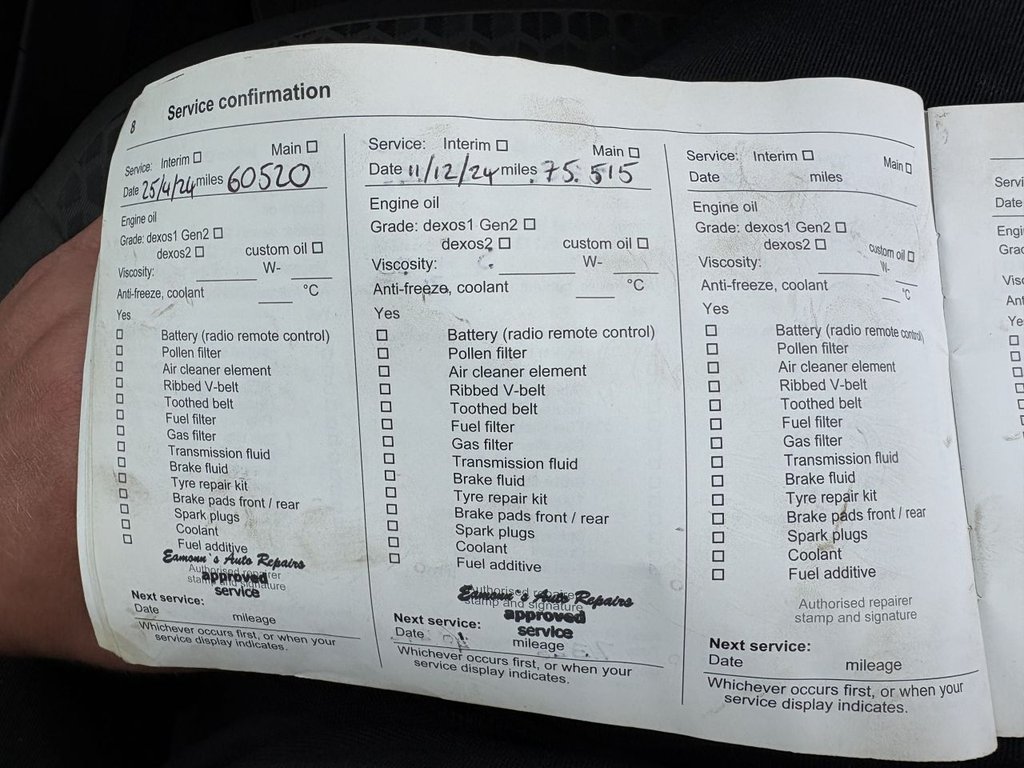 8 Service confirmation
Service: Interim ☐ Main ☐
Date 25/4/24 miles 60520
Engine oil
Grade: dexos1 Gen2 ☐
dexos2 ☐ custom oil ☐
Viscosity: ______ W- ____
Anti-freeze, coolant ____ °C
Yes
☐ Battery (radio remote control)
☐ Pollen filter
☐ Air cleaner element
☐ Ribbed V-belt
☐ Toothed belt
☐ Fuel filter
☐ Gas filter
☐ Transmission fluid
☐ Brake fluid
☐ Tyre repair kit
☐ Brake pads front / rear
☐ Spark plugs
☐ Coolant
☐ Fuel additive
Eamonn's Auto Repairs
Authorised repairer
approved
stamp and signature
service
Next service:
Date mileage
Whichever occurs first, or when your
service display indicates.
Service: Interim ☐ Main ☐
Date 11/12/24 miles 75.515
Engine oil
Grade: dexos1 Gen2 ☐
dexos2 ☐ custom oil ☐
Viscosity: ______ W- ____
Anti-freeze, coolant ____ °C
Yes
☐ Battery (radio remote control)
☐ Pollen filter
☐ Air cleaner element
☐ Ribbed V-belt
☐ Toothed belt
☐ Fuel filter
☐ Gas filter
☐ Transmission fluid
☐ Brake fluid
☐ Tyre repair kit
☐ Brake pads front / rear
☐ Spark plugs
☐ Coolant
☐ Fuel additive
Authorised repairer
Eamonn's Auto Repairs
stamp and signature
approved
service
Next service:
Date mileage
Whichever occurs first, or when your
service display indicates.
Service: Interim ☐ Main ☐
Date miles
Engine oil
Grade: dexos1 Gen2 ☐
dexos2 ☐ custom oil ☐
Viscosity: ______ W- ____
Anti-freeze, coolant ____ °C
Yes
☐ Battery (radio remote control)
☐ Pollen filter
☐ Air cleaner element
☐ Ribbed V-belt
☐ Toothed belt
☐ Fuel filter
☐ Gas filter
☐ Transmission fluid
☐ Brake fluid
☐ Tyre repair kit
☐ Brake pads front / rear
☐ Spark plugs
☐ Coolant
☐ Fuel additive
Authorised repairer
stamp and signature
Next service:
Date mileage
Whichever occurs first, or when your
service display indicates.
Date